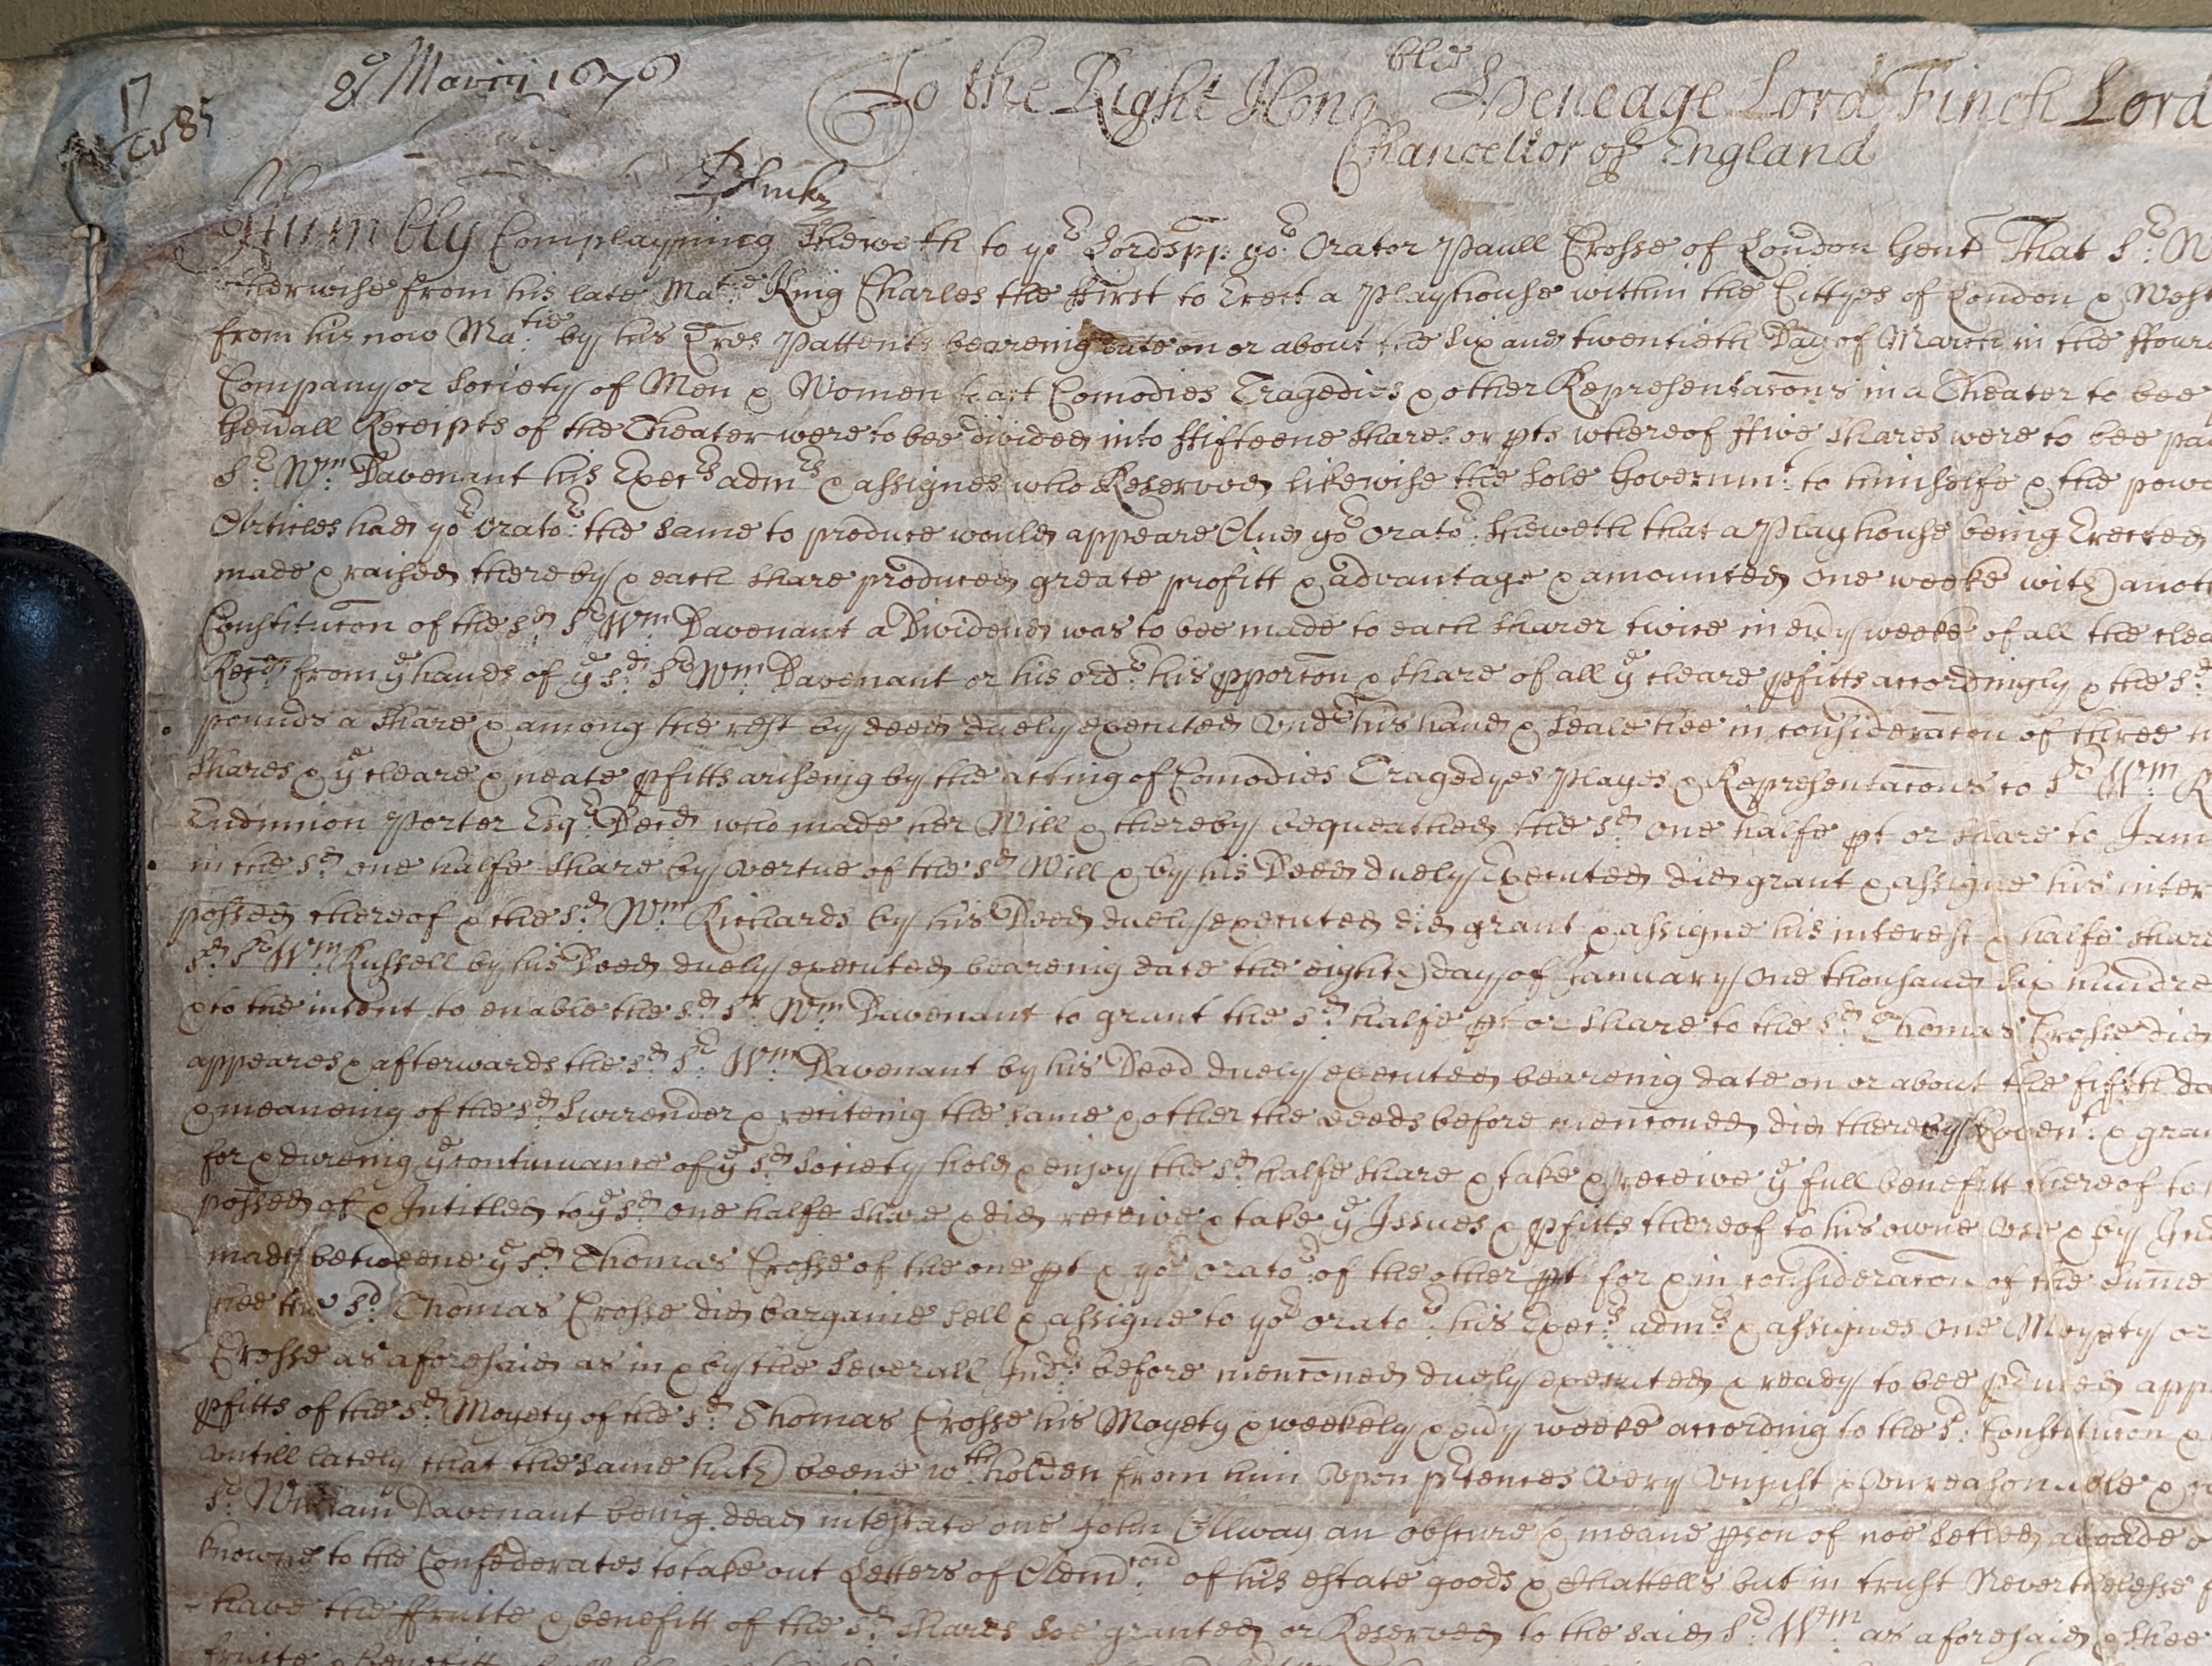 17
85
8o Marcij 1676
To the Right Honoble Heneage Lord Finch Lord
Chancellor of England
Humbly Complayning Sheweth to yor Lordspp: yor Orator Paull Crosse of London Gent That Sr: W
otherwise from his late Matie King Charles the ffirst to Erect a Playhouse within the Cittyes of London & West
from his now Matie: by his Lres Pattents beareing date on or about the Six and twentieth Day of March in the ffour
Company or Society of Men & Women to act Comodies Tragedies & other Representacons in a Theater to bee
Genrall Receipts of the Theater were to bee divided into ffifteene Shares or pts whereof ffive Shares were to bee pa
Sr: Wm: Davenant his Execrs admrs & assignes who Reserved likewise the sole Governmt: to himselfe & the powe
Articles had yor Orator: the same to produce would appeare And yor Orator: Sheweth that a Playhouse being Erected
made & raised thereby & each share produced greate profitt & advantage & amounted one weeke with anoth
Constitucon of the sd: Sr Wm Davenant a Dividend was to bee made to each sharer twice in evy weeke of all the clea
Recd: from ye hands of ye sd: Sr Wm: Davenant or his ordr: his pporcon & share of all ye cleare pfitts accordingly & the sd
pounds a share & among the rest by deed duely executed Undr his hand & seale hee in consideracon of three
shares & ye cleare & neate pfitts ariseing by the acting of Comodies Tragedyes Playes & Representacons to Sr Wm R
Endimion Porter Esqr: Decd who made her Will & thereby bequeathed the sd one halfe pt or share to Jam
in the sd one halfe share by vertue of the sd Will & by his Deed duely Executed did grant & assigne his inter
possed thereof & the sd: Wm: Richards by his Deed duely executed did grant & assigne his interest & halfe share
sd Sr Wm: Russell by his Deed duely executed beareing date the eighth day of January One thousand six hundre
& to the intent to enable the sd: Sr Wm Davenant to grant the sd halfe pt or share to the sd: Thomas Crosse did
appeares & afterwards the sd: Sr: Wm: Davenant by his Deed duely executed beareing date on or about the fifth da
& meaneing of the sd Surrender & reciteing the same & other the deeds before menconed did thereby Covent: & gra
for & dureing ye continuance of ye sd Society hold & enjoy the sd: halfe share & take & receive ye full benefitt thereof to
possed of & Intitled to ye sd: one halfe share & did receive & take ye Issues & pfitts thereof to his owne use & by In
made betweene ye sd: Thomas Crosse of the one pt & yor Orator: of the other pt for & in consideracon of the summe
hee the sd: Thomas Crosse did bargaine sell & assigne to yor Orator: his Execrs: admrs: & assignes One Moyety or
Crosse as aforesaid as in & by the severall Indrs: before menconed duely executed & ready to bee pduced app
pfitts of the sd: Moyety of the sd Thomas Crosse his Moyety & weekely & evy weeke according to the sd: Constitucon &
untill lately that the same hath beene wthholden from him Upon ptences very unjust & unreasonable &
Sr: William Davenant being dead intestate one John Allway an obscure & meane pson of noe setled aboade
knowne to the Confederates to take out Letters of Admcon: of his estate goods & Chattells but in trust Neverthelesse
have the ffruite & benefitt of the sd: shares soe granted or Reserved to the said Sr Wm: as aforesaid & shee
fruite & benefitt